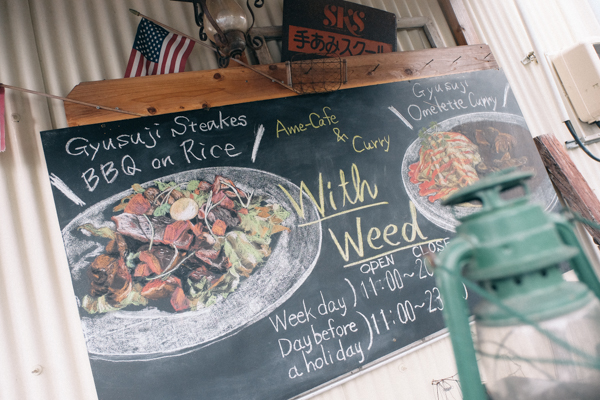 SKS
手あみスクール
Gyusuji Steakes
BBQ on Rice
Ame-Cafe
& Curry
Gyusuji
Omelette Curry
With
Weed
OPEN CLOSE
Week day) 11:00~
Day before
a holiday) 11:00~23: